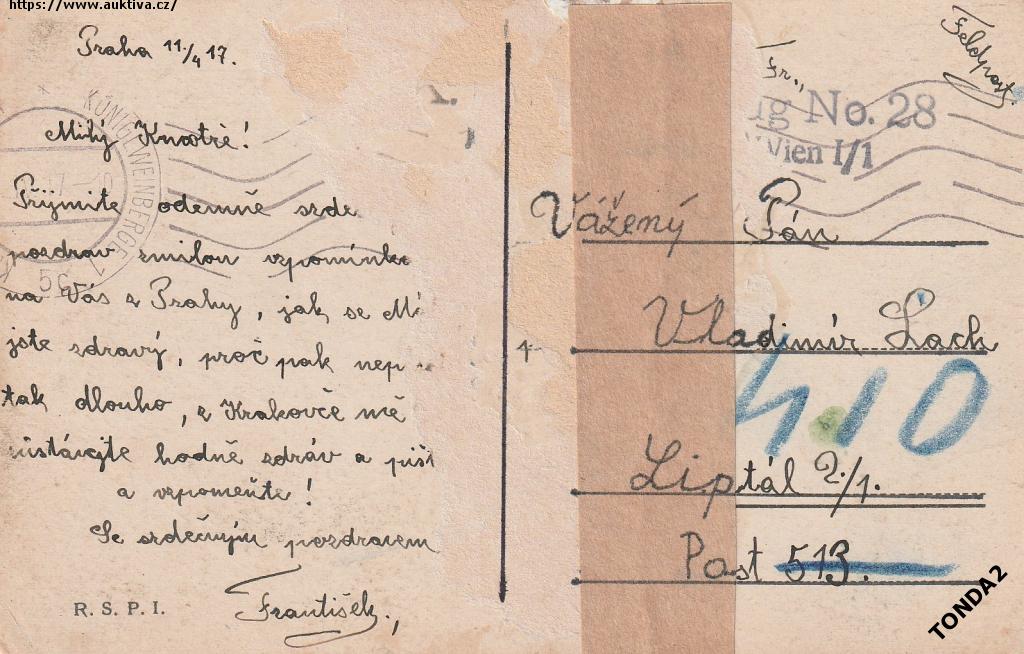 https://www.auktiva.cz/
Praha 11./4 17.
Milý Kmotře!
Přijmite odemně srde
pozdrav smilou vzpomínke
na Vás z Prahy, jak se Má
jste zdravý, proč pak nep
tak dlouho, z Krakovče mě
zůstávejte hodně zdráv a pišt
a vzpomeňte!
Se srdečným pozdravem
František.,
R. S. P. I.
KÖNIGL. WEINBERGE
4
Feldpost.
Fr.,
ig No. 28
Wien I/1
Vážený Pán
Vladimír Lach
410
Liptál 2./1.
Post 513.
TONDA2